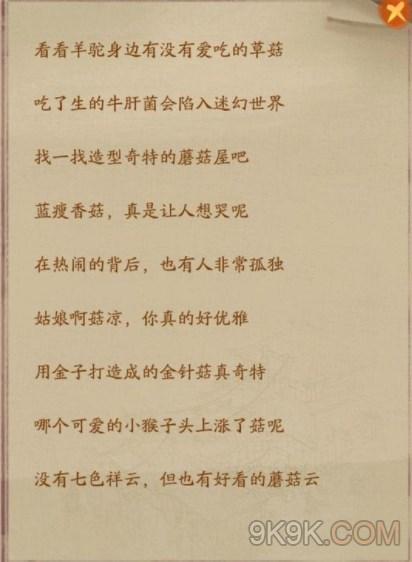 看看羊驼身边有没有爱吃的草菇
吃了生的牛肝菌会陷入迷幻世界
找一找造型奇特的蘑菇屋吧
蓝瘦香菇，真是让人想哭呢
在热闹的背后，也有人非常孤独
姑娘啊菇凉，你真的好优雅
用金子打造成的金针菇真奇特
哪个可爱的小猴子头上涨了菇呢
没有七色祥云，但也有好看的蘑菇云
9K9K.COM